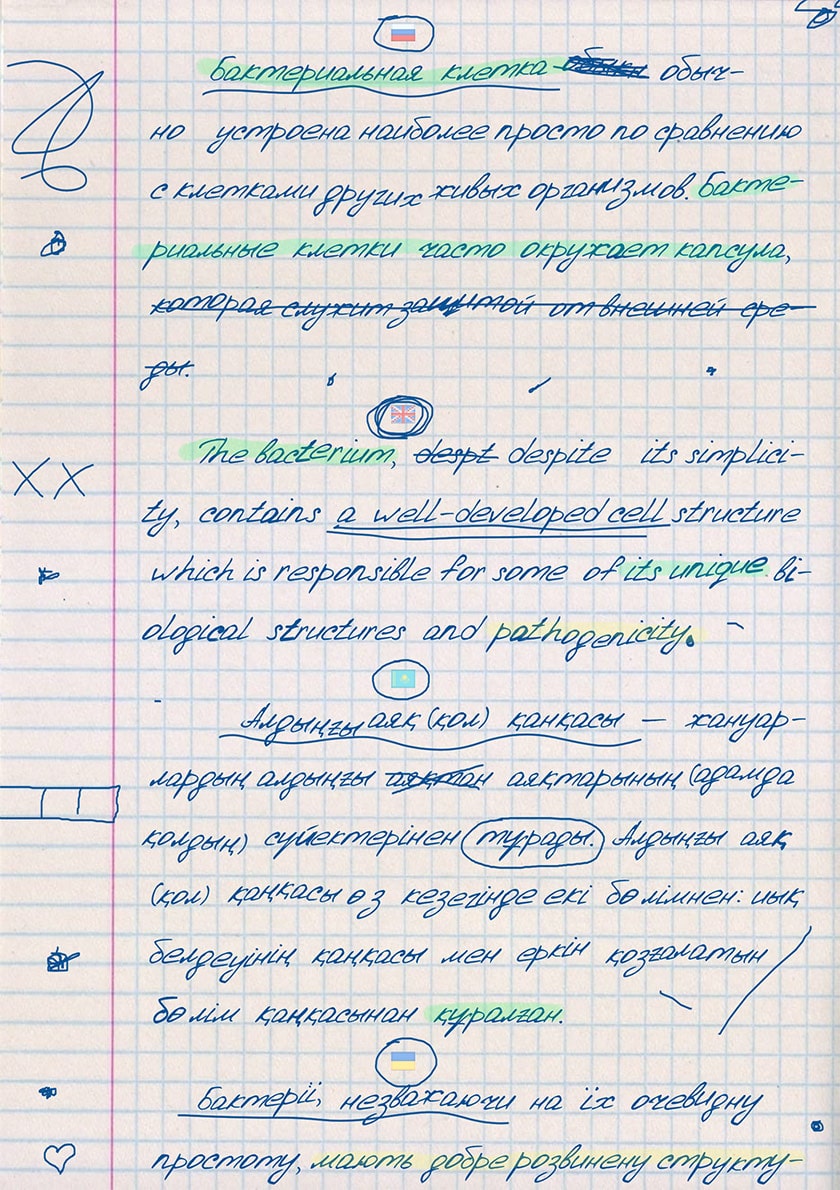 Бактериальная клетка обыч-
но устроена наиболее просто по сравнению
с клетками других живых организмов. Бакте-
риальные клетки часто окружает капсула,
которая служит защитой от внешней сре-
ды.
The bacterium, despt despite its simplici-
ty, contains a well-developed cell structure
which is responsible for some of its unique bi-
ological structures and pathogenicity.
Алдыңғы аяқ (қол) қаңқасы — жануар-
лардың алдыңғы аяқтан аяқтарының (адамда
қолдың) сүйектерінен тұрады. Алдыңғы аяқ
(қол) қаңқасы өз кезегінде екі бөлімнен: иық
белдеуінің қаңқасы мен еркін қозғалатын
бөлім қаңқасынан құралған.
Бактерії, незважаючи на їх очевидну
простоту, мають добре розвинену структу-